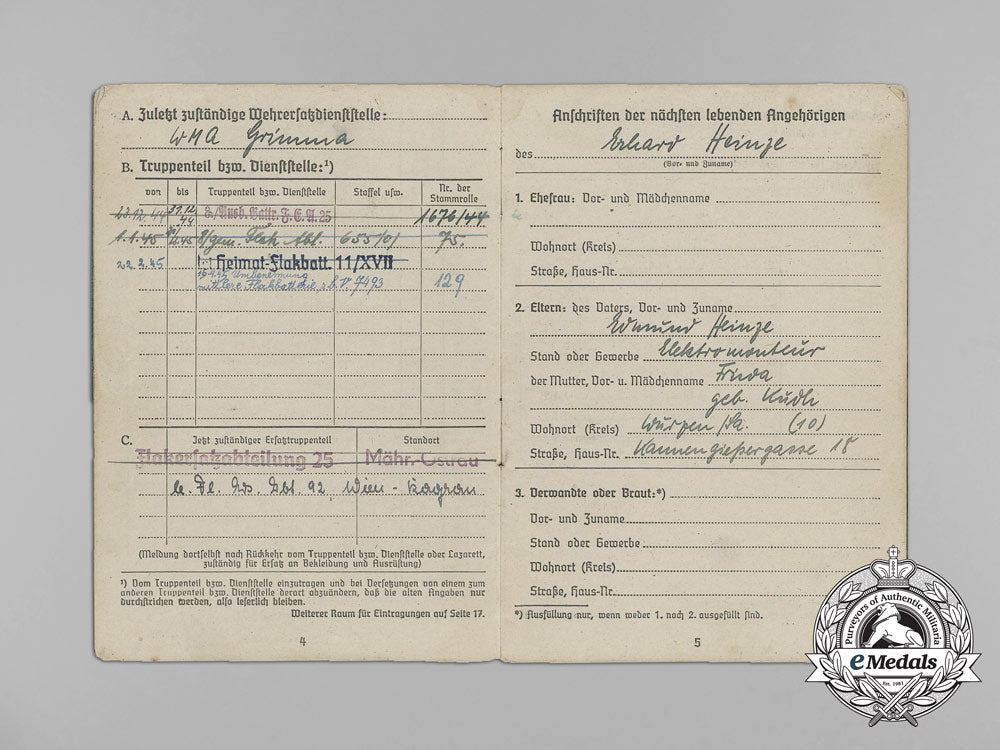 A. Zuletzt zuständige Wehrersatzdienststelle:
WMA Grimma
B. Truppenteil bzw. Dienststelle:¹)
von bis Truppenteil bzw. Dienststelle Staffel usw. Nr. der Stammrolle
23.12.44 31.12.44 Ausb. Battr. F.E.A. 25 1676/44
1.1.45 Flak Abt. 655/0 75.
22.2.45 Heimat-Flakbatt. 11/XVII
Umbenennung
mittlere Flakbatterie z.b.V. 7493 129
C. Jetzt zuständiger Ersatztruppenteil Standort
Flakersatzabteilung 25 Mähr.-Ostrau
le. Fl. Ers. Abt. 92, Wien - Kagran
(Meldung dortselbst nach Rückkehr vom Truppenteil bzw. Dienststelle oder Lazarett,
zuständig für Ersatz an Bekleidung und Ausrüstung)
¹) Vom Truppenteil bzw. Dienststelle einzutragen und bei Versetzungen von einem zum
anderen Truppenteil bzw. Dienststelle derart abzuändern, daß die alten Angaben nur
durchstrichen werden, also leserlich bleiben.
Weiterer Raum für Eintragungen auf Seite 17.
4
Anschriften der nächsten lebenden Angehörigen
des Erhard Heinze
(Vor- und Zuname)
1. Ehefrau: Vor- und Mädchenname
Wohnort (Kreis)
Straße, Haus-Nr.
2. Eltern: des Vaters, Vor- und Zuname
Edmund Heinze
Stand oder Gewerbe Elektromonteur
der Mutter, Vor- u. Mädchenname Frieda
geb.
Wohnort (Kreis) Wurzen /Sa. (10)
Straße, Haus-Nr. Kannengießergasse 18
3. Verwandte oder Braut:*)
Vor- und Zuname
Stand oder Gewerbe
Wohnort (Kreis)
Straße, Haus-Nr.
*) Ausfüllung nur, wenn weder 1. noch 2. ausgefüllt sind.
5
Purveyors of Authentic Militaria
eMedals
Est. 1981